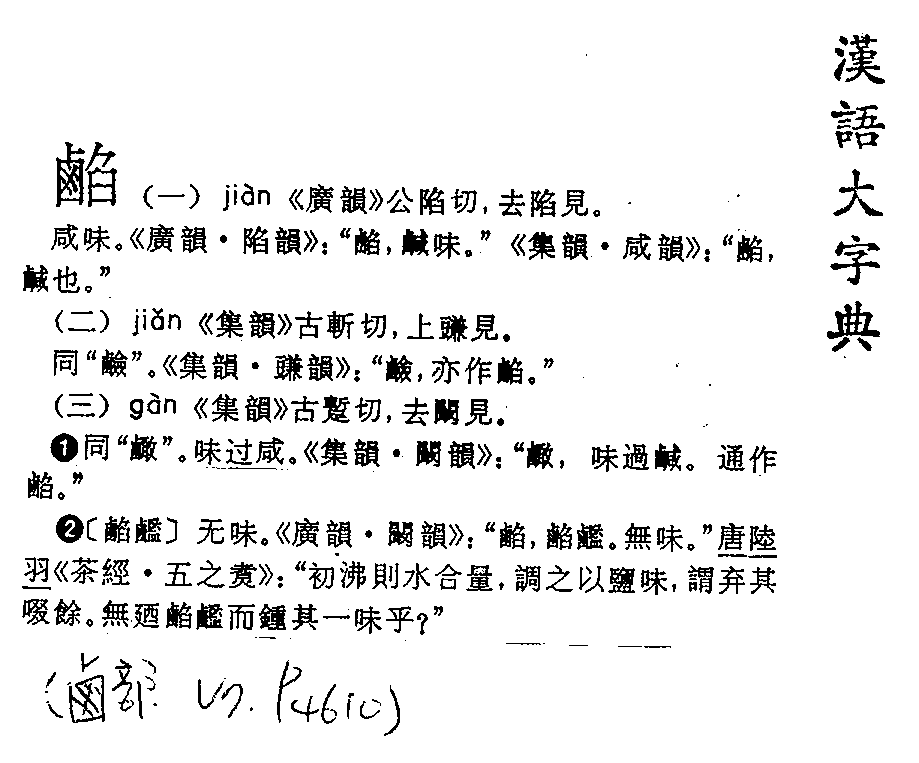 漢語大字典
䶢 （一）jiàn《廣韻》公陷切，去陷見。
咸味。《廣韻·陷韻》：“䶢，鹹味。”《集韻·咸韻》：“䶢，
鹹也。”
（二）jiǎn《集韻》古斬切，上豏見。
同“鹼”。《集韻·豏韻》：“鹼，亦作䶢。”
（三）gàn《集韻》古蹔切，去闞見。
❶同“䶎”。味过咸。《集韻·闞韻》：“䶎，味過鹹。通作
䶢。”
❷〔䶢䶣〕无味。《廣韻·闞韻》：“䶢，䶢䶣。無味。”唐陸
羽《茶經·五之煑》：“初沸則水合量，調之以鹽味，謂弃其
啜餘。無廼䶢䶣而鍾其一味乎？”
(鹵部 V7. P4610)